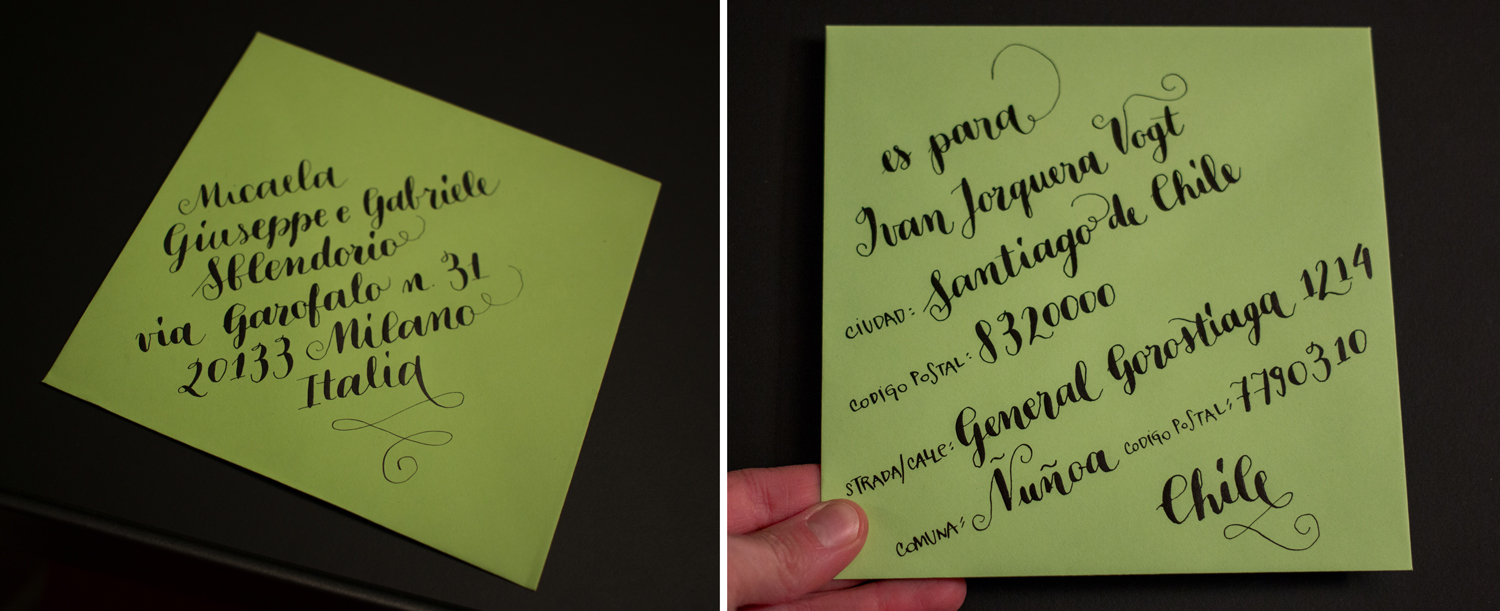 Micaela
Giuseppe e Gabriele
Sblendorio
via Garofalo n. 31
20133 Milano
Italia
es para
Ivan Jorquera Vogt
CIUDAD: Santiago de Chile
CODIGO POSTAL: 8320000
STRADA/CALLE: General Gorostiaga 1214
COMUNA: Ñuñoa CODIGO POSTAL: 7790310
Chile